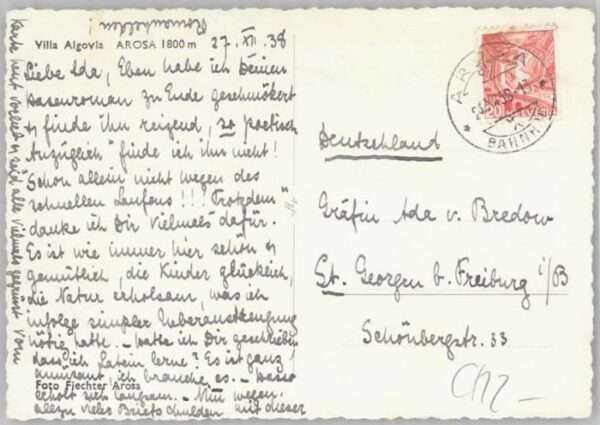 Villa Algovia AROSA 1800 m 27. XII. 38
Liebe Ada, Eben habe ich Deinen
Hasenroman zu Ende geschmökert
& finde ihn reizend, so poetisch
"Anzüglich" finde ich ihn nicht!
Schon allein nicht wegen des
schnellen Laufens!!! "Trotzdem"
danke ich Dir vielmals dafür.
Es ist wie immer hier schön &
gemütlich, die Kinder glücklich,
die Natur erholsam, was ich
infolge simpler Überanstrengung
nötig hatte. – Hatte ich Dir geschrieben
dass ich Latein lerne? Es ist ganz
amüsant, ich brauche es. –
erholt sich langsam. – Nun wegen
Foto Fiechter Arosa
allzu vieler Briefschulden mit dieser
Karte vorlieb & seid alle vielmals gegrüsst vom
Romanhelden!
AROSA
BAHNHOF
20
Deutschland
Gräfin Ada v. Bredow
St. Georgen b. Freiburg i/B
Schönbergstr. 33